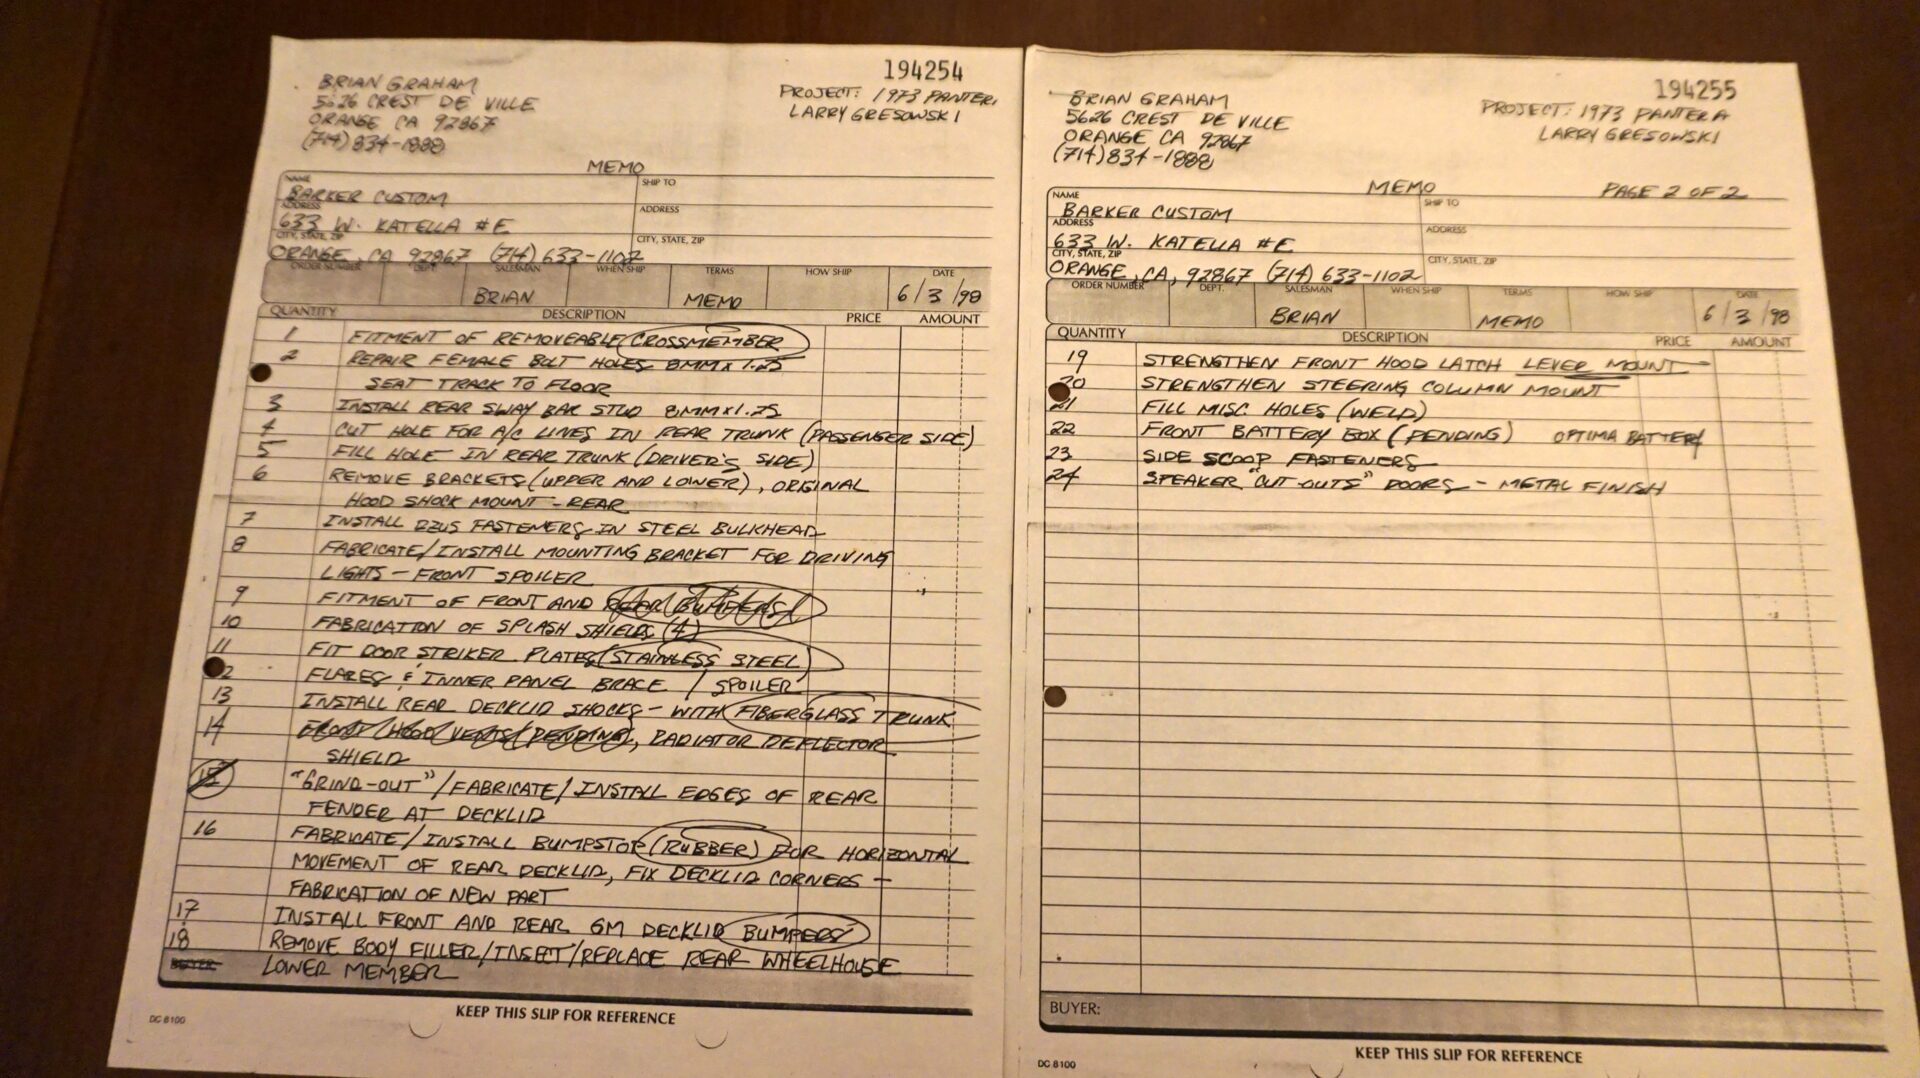 194254
BRIAN GRAHAM
5626 CREST DE VILLE
ORANGE CA 92867
(714) 834-1888
PROJECT: 1973 PANTERA
LARRY GRESOWSKI
MEMO
NAME
BARKER CUSTOM
SHIP TO
ADDRESS
633 W. KATELLA #E
ADDRESS
CITY, STATE, ZIP
ORANGE, CA 92867 (714) 633-1102
CITY, STATE, ZIP
ORDER NUMBER DEPT. SALESMAN WHEN SHIP TERMS HOW SHIP DATE
BRIAN MEMO 6/3/98
QUANTITY DESCRIPTION PRICE AMOUNT
1 FITMENT OF REMOVEABLE CROSSMEMBER
2 REPAIR FEMALE BOLT HOLES 8MM X 1.25
SEAT TRACK TO FLOOR
3 INSTALL REAR SWAY BAR STUD 8MM X 1.25
4 CUT HOLE FOR A/C LINES IN REAR TRUNK (PASSENGER SIDE)
5 FILL HOLE IN REAR TRUNK (DRIVER'S SIDE)
6 REMOVE BRACKETS (UPPER AND LOWER), ORIGINAL
HOOD SHOCK MOUNT - REAR
7 INSTALL DZUS FASTENERS IN STEEL BULKHEAD
8 FABRICATE/INSTALL MOUNTING BRACKET FOR DRIVING
LIGHTS - FRONT SPOILER
9 FITMENT OF FRONT AND REAR BUMPERS
10 FABRICATION OF SPLASH SHIELDS (4)
11 FIT DOOR STRIKER PLATES (STAINLESS STEEL)
12 FLARES & INNER PANEL BRACE / SPOILER
13 INSTALL REAR DECKLID SHOCKS - WITH FIBERGLASS TRUNK
14 FRONT HOOD VENTS (PENDING), RADIATOR DEFLECTOR
SHIELD
15 "GRIND-OUT" / FABRICATE / INSTALL EDGES OF REAR
FENDER AT DECKLID
16 FABRICATE / INSTALL BUMPSTOP (RUBBER) FOR HORIZONTAL
MOVEMENT OF REAR DECKLID, FIX DECKLID CORNERS -
FABRICATION OF NEW PART
17 INSTALL FRONT AND REAR GM DECKLID BUMPERS
18 REMOVE BODY FILLER/INSECT/REPLACE REAR WHEELHOUSE
BUYER LOWER MEMBER
KEEP THIS SLIP FOR REFERENCE
DC 8100
194255
BRIAN GRAHAM
5626 CREST DE VILLE
ORANGE CA 92867
(714) 834-1888
PROJECT: 1973 PANTERA
LARRY GRESOWSKI
MEMO PAGE 2 OF 2
NAME
BARKER CUSTOM
SHIP TO
ADDRESS
633 W. KATELLA #E
ADDRESS
CITY, STATE, ZIP
ORANGE, CA, 92867 (714) 633-1102
CITY, STATE, ZIP
ORDER NUMBER DEPT. SALESMAN WHEN SHIP TERMS HOW SHIP DATE
BRIAN MEMO 6/3/98
QUANTITY DESCRIPTION PRICE AMOUNT
19 STRENGTHEN FRONT HOOD LATCH LEVER MOUNT
20 STRENGTHEN STEERING COLUMN MOUNT
21 FILL MISC HOLES (WELD)
22 FRONT BATTERY BOX (PENDING) OPTIMA BATTERY
23 SIDE SCOOP FASTENERS
24 SPEAKER "CUT-OUTS" DOORS - METAL FINISH
BUYER:
KEEP THIS SLIP FOR REFERENCE
DC 8100